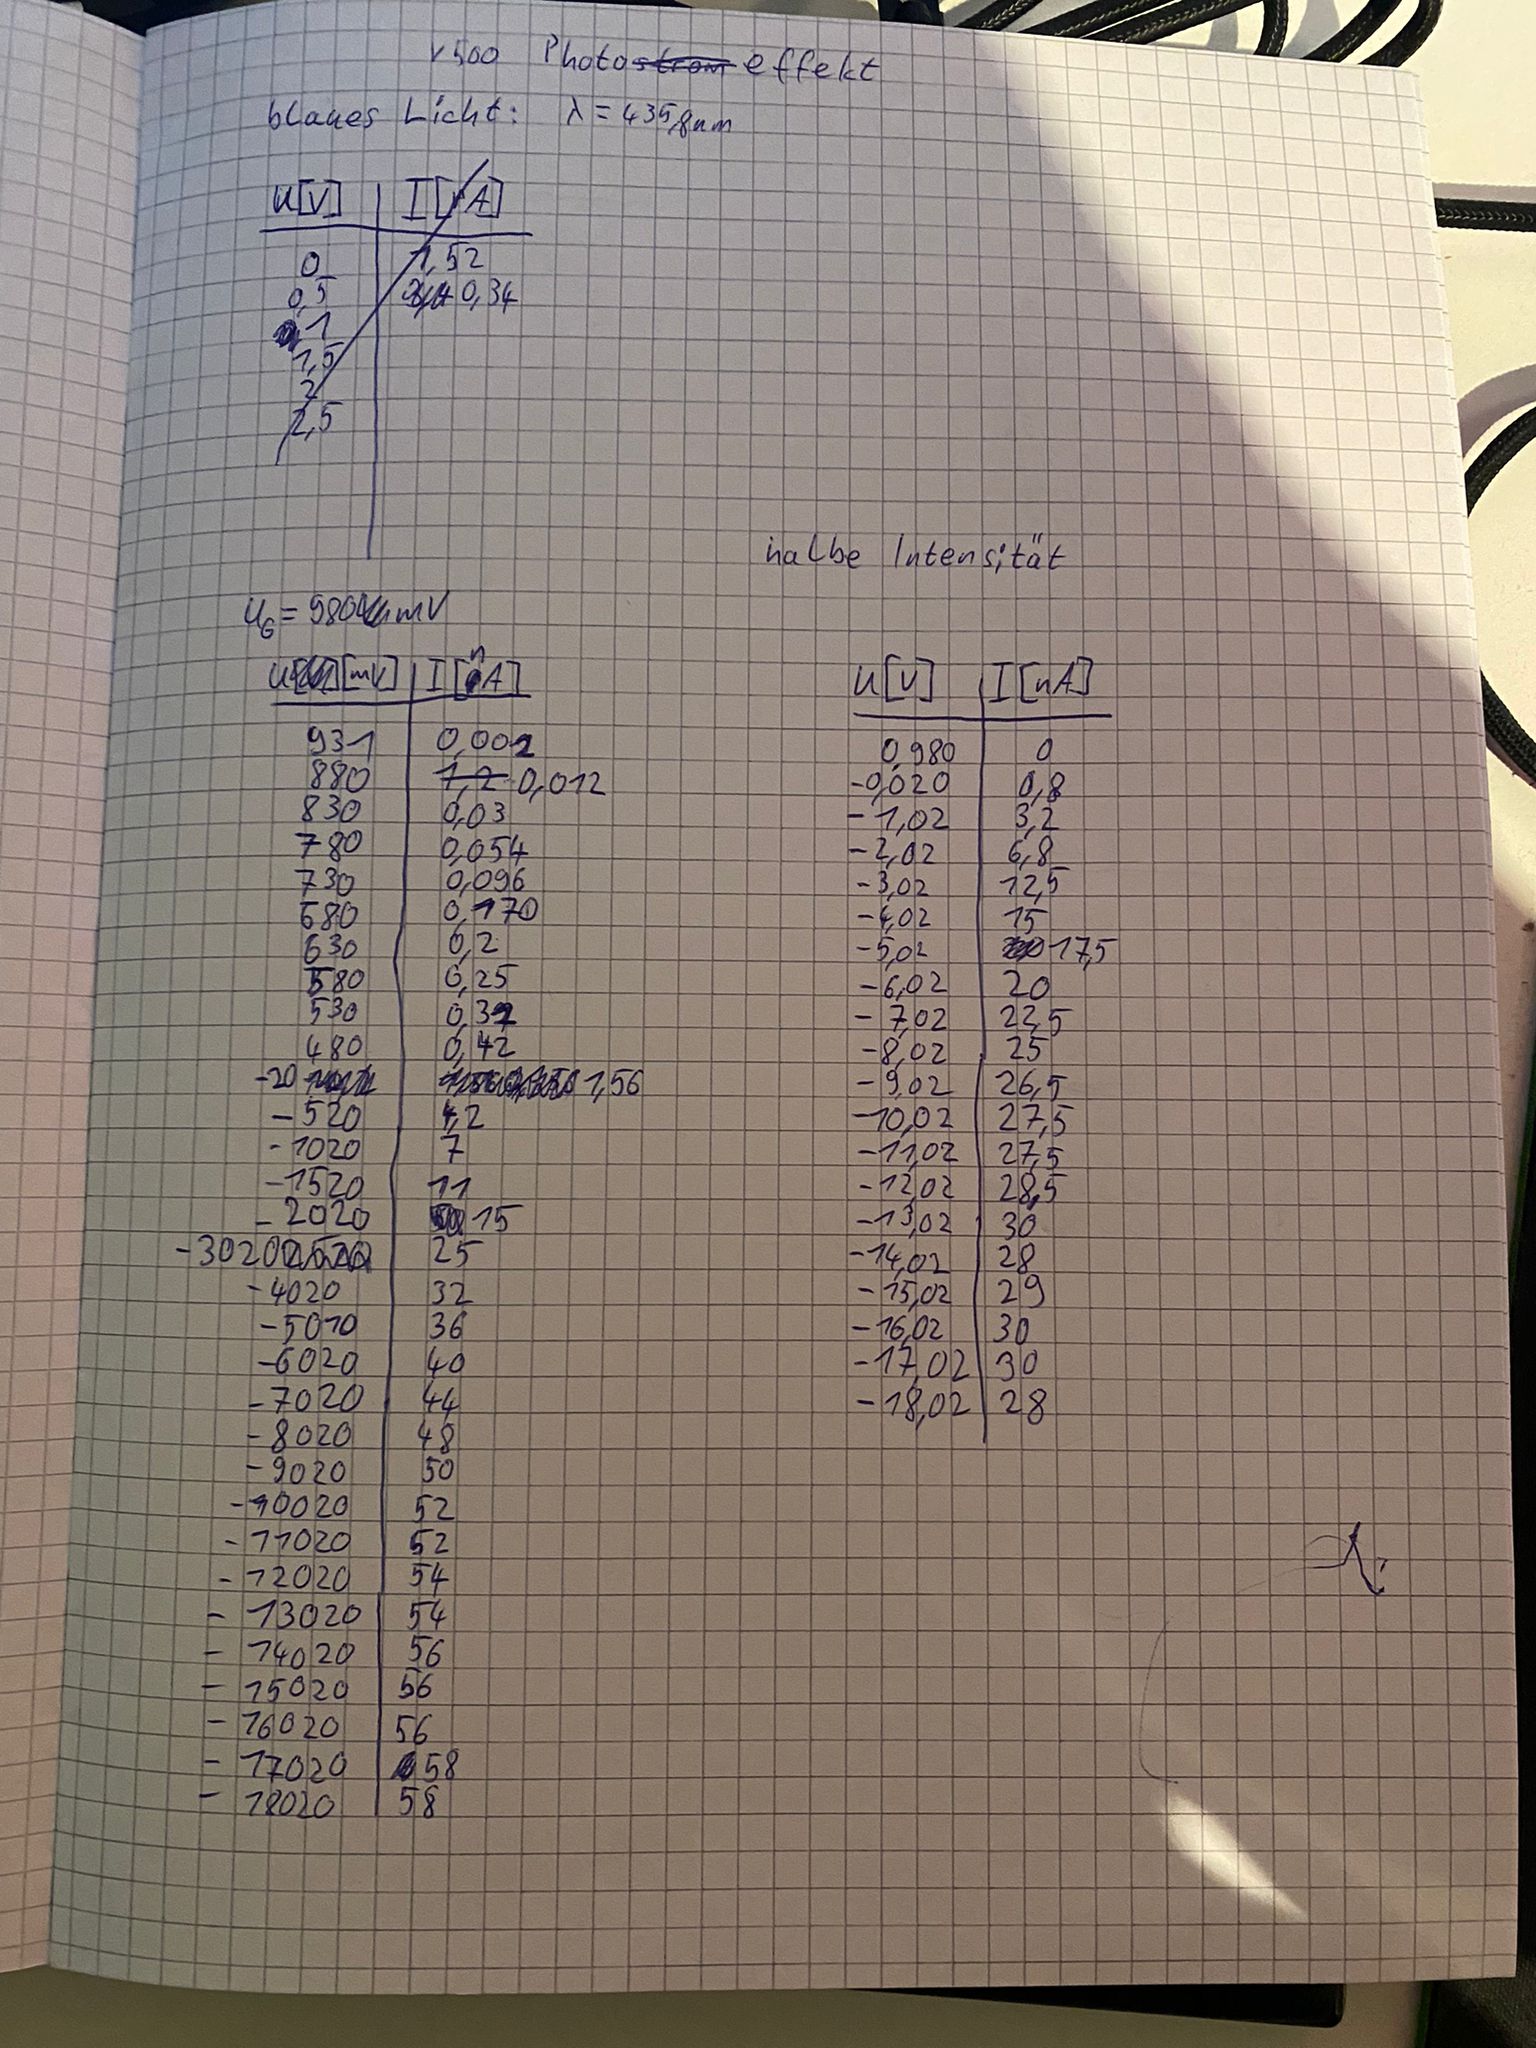 V500 Photostrom effekt
blaues Licht: λ = 435,8nm
U[V] I[nA]
0 1,52
0,5 0,34
1
1,5
2
2,5
halbe Intensität
U_G = 980 mV
U [mV] I [nA]
931 0,002
880 1,2 0,012
830 0,03
780 0,054
730 0,096
680 0,170
630 0,2
580 0,25
530 0,32
480 0,42
-20 1,56
-520 4,2
-1020 7
-1520 11
-2020 15
-3020 25
-4020 32
-5010 36
-6020 40
-7020 44
-8020 48
-9020 50
-10020 52
-11020 52
-12020 54
-13020 54
-14020 56
-15020 56
-16020 56
-17020 58
-18020 58
U[V] I[nA]
0,980 0
-0,020 0,8
-1,02 3,2
-2,02 6,8
-3,02 12,5
-4,02 15
-5,02 17,5
-6,02 20
-7,02 22,5
-8,02 25
-9,02 26,5
-10,02 27,5
-11,02 27,5
-12,02 28,5
-13,02 30
-14,02 28
-15,02 29
-16,02 30
-17,02 30
-18,02 28